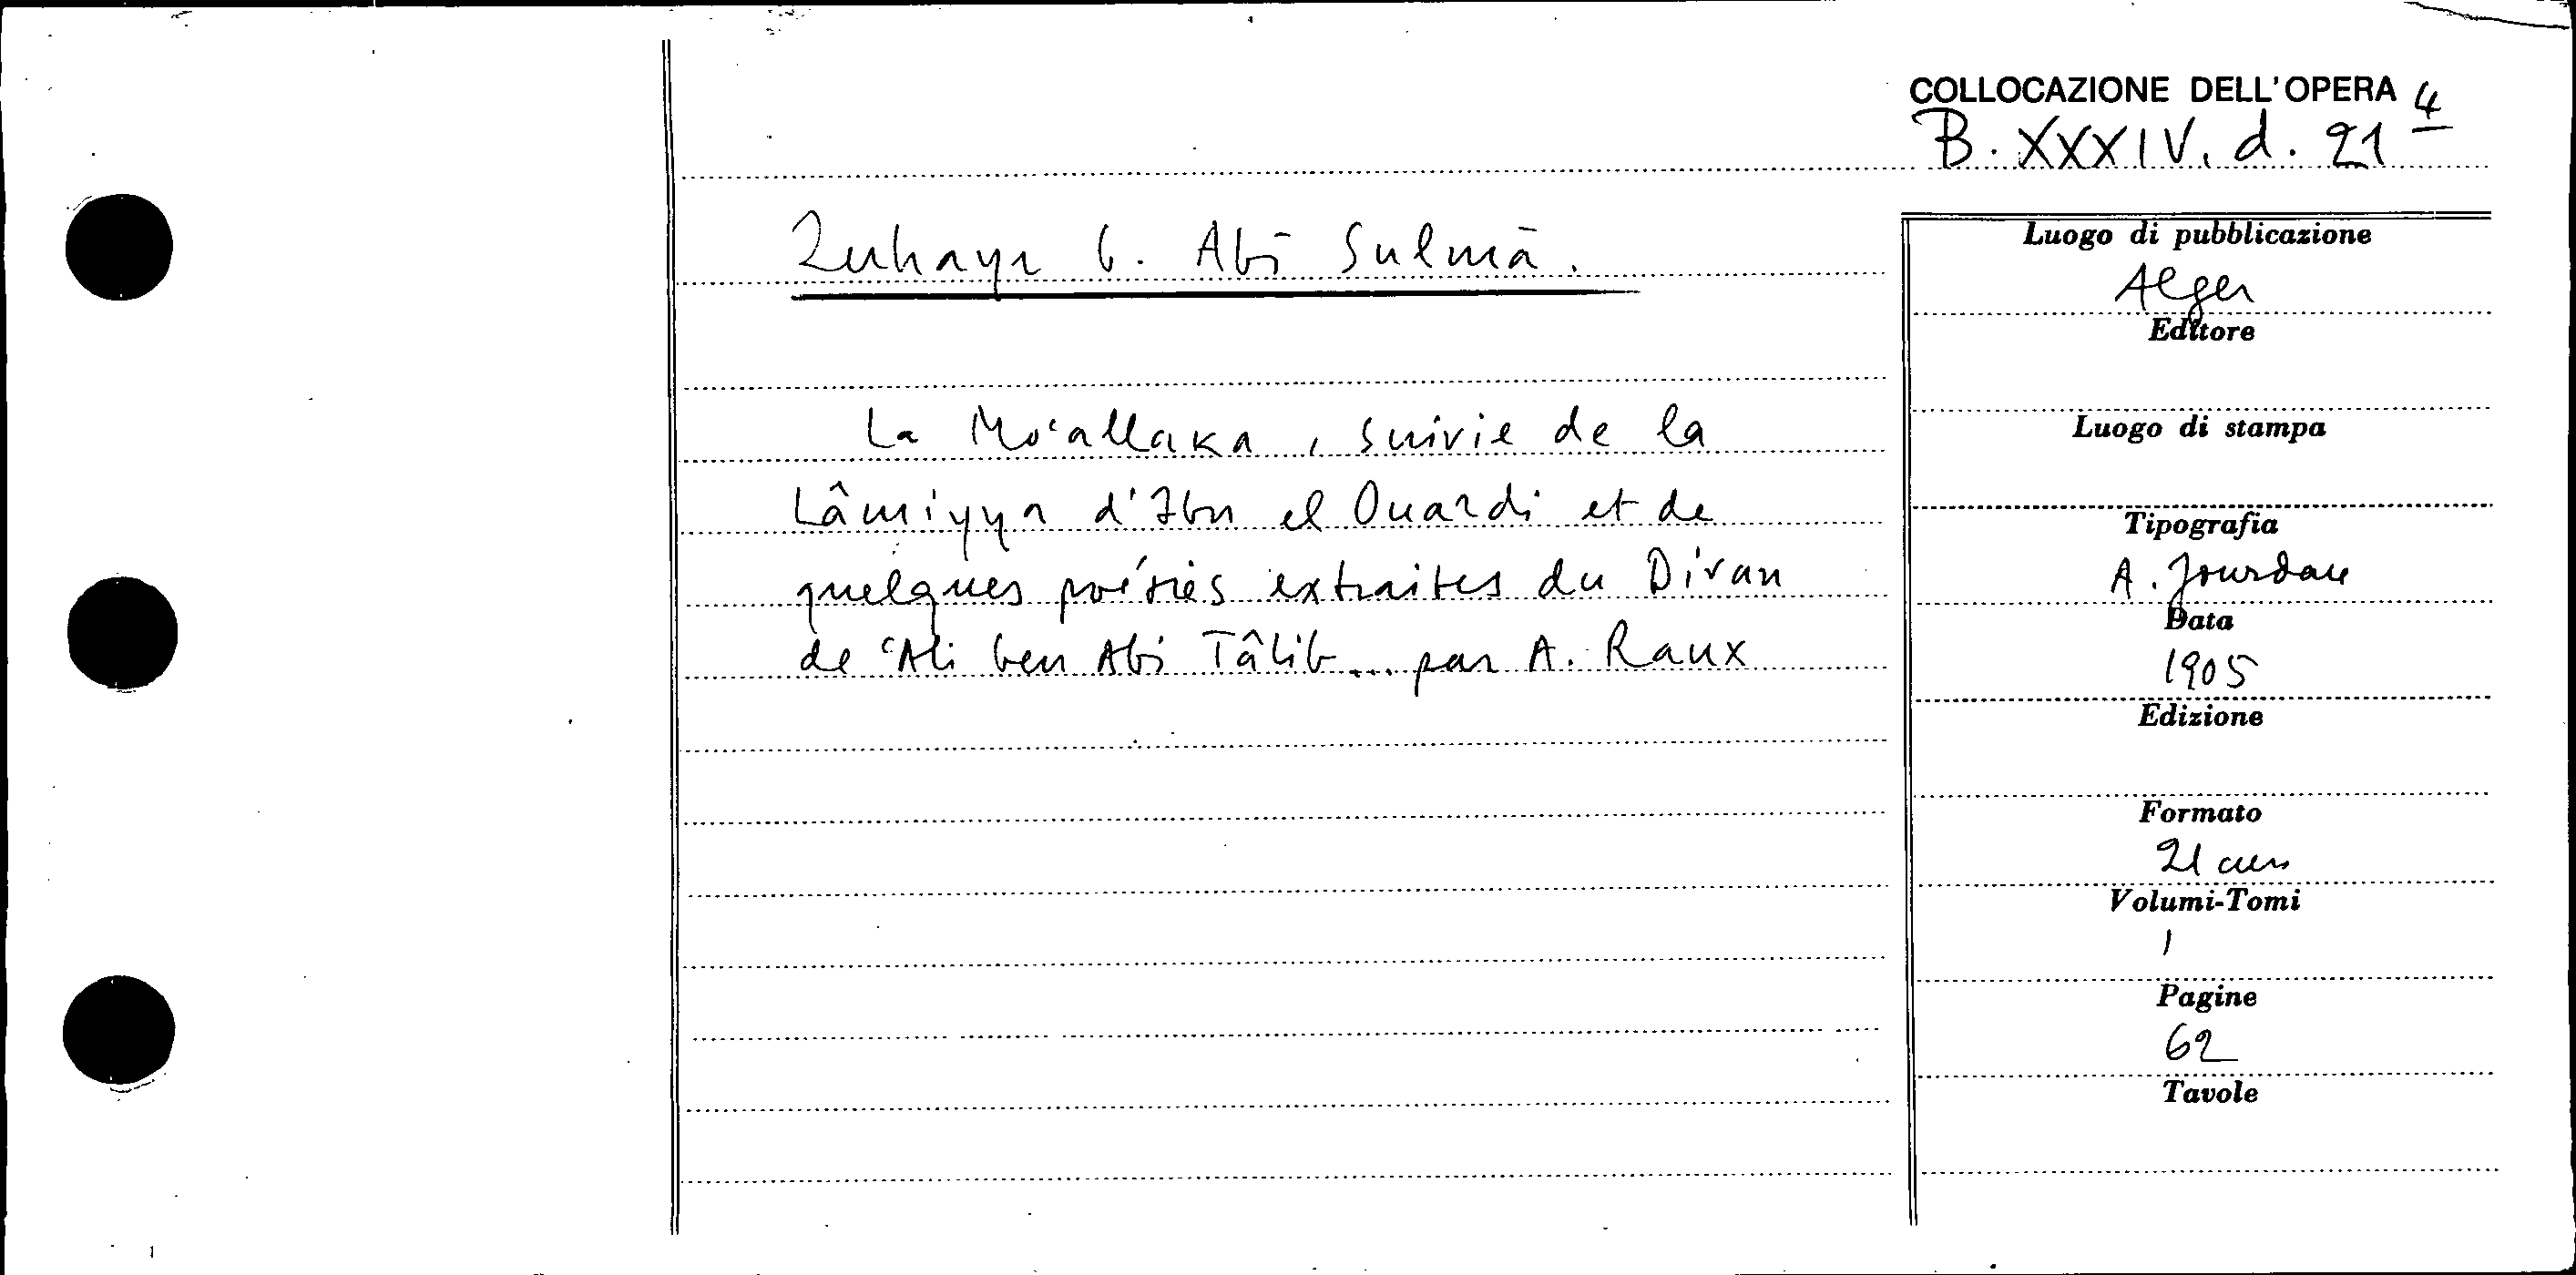 COLLOCAZIONE DELL'OPERA
B. XXXIV. d. 21 4
Zuhayr b. Abī Sulmā.
La Mo‘allaka, suivie de la
Lâmiyya d'Ibn el Ouardi et de
quelques poésies extraites du Divan
de ‘Ali ben Abi Tâlib... par A. Raux
Luogo di pubblicazione
Alger
Editore
Luogo di stampa
Tipografia
A. Jourdan
Data
1905
Edizione
Formato
21 cm
Volumi-Tomi
1
Pagine
62
Tavole